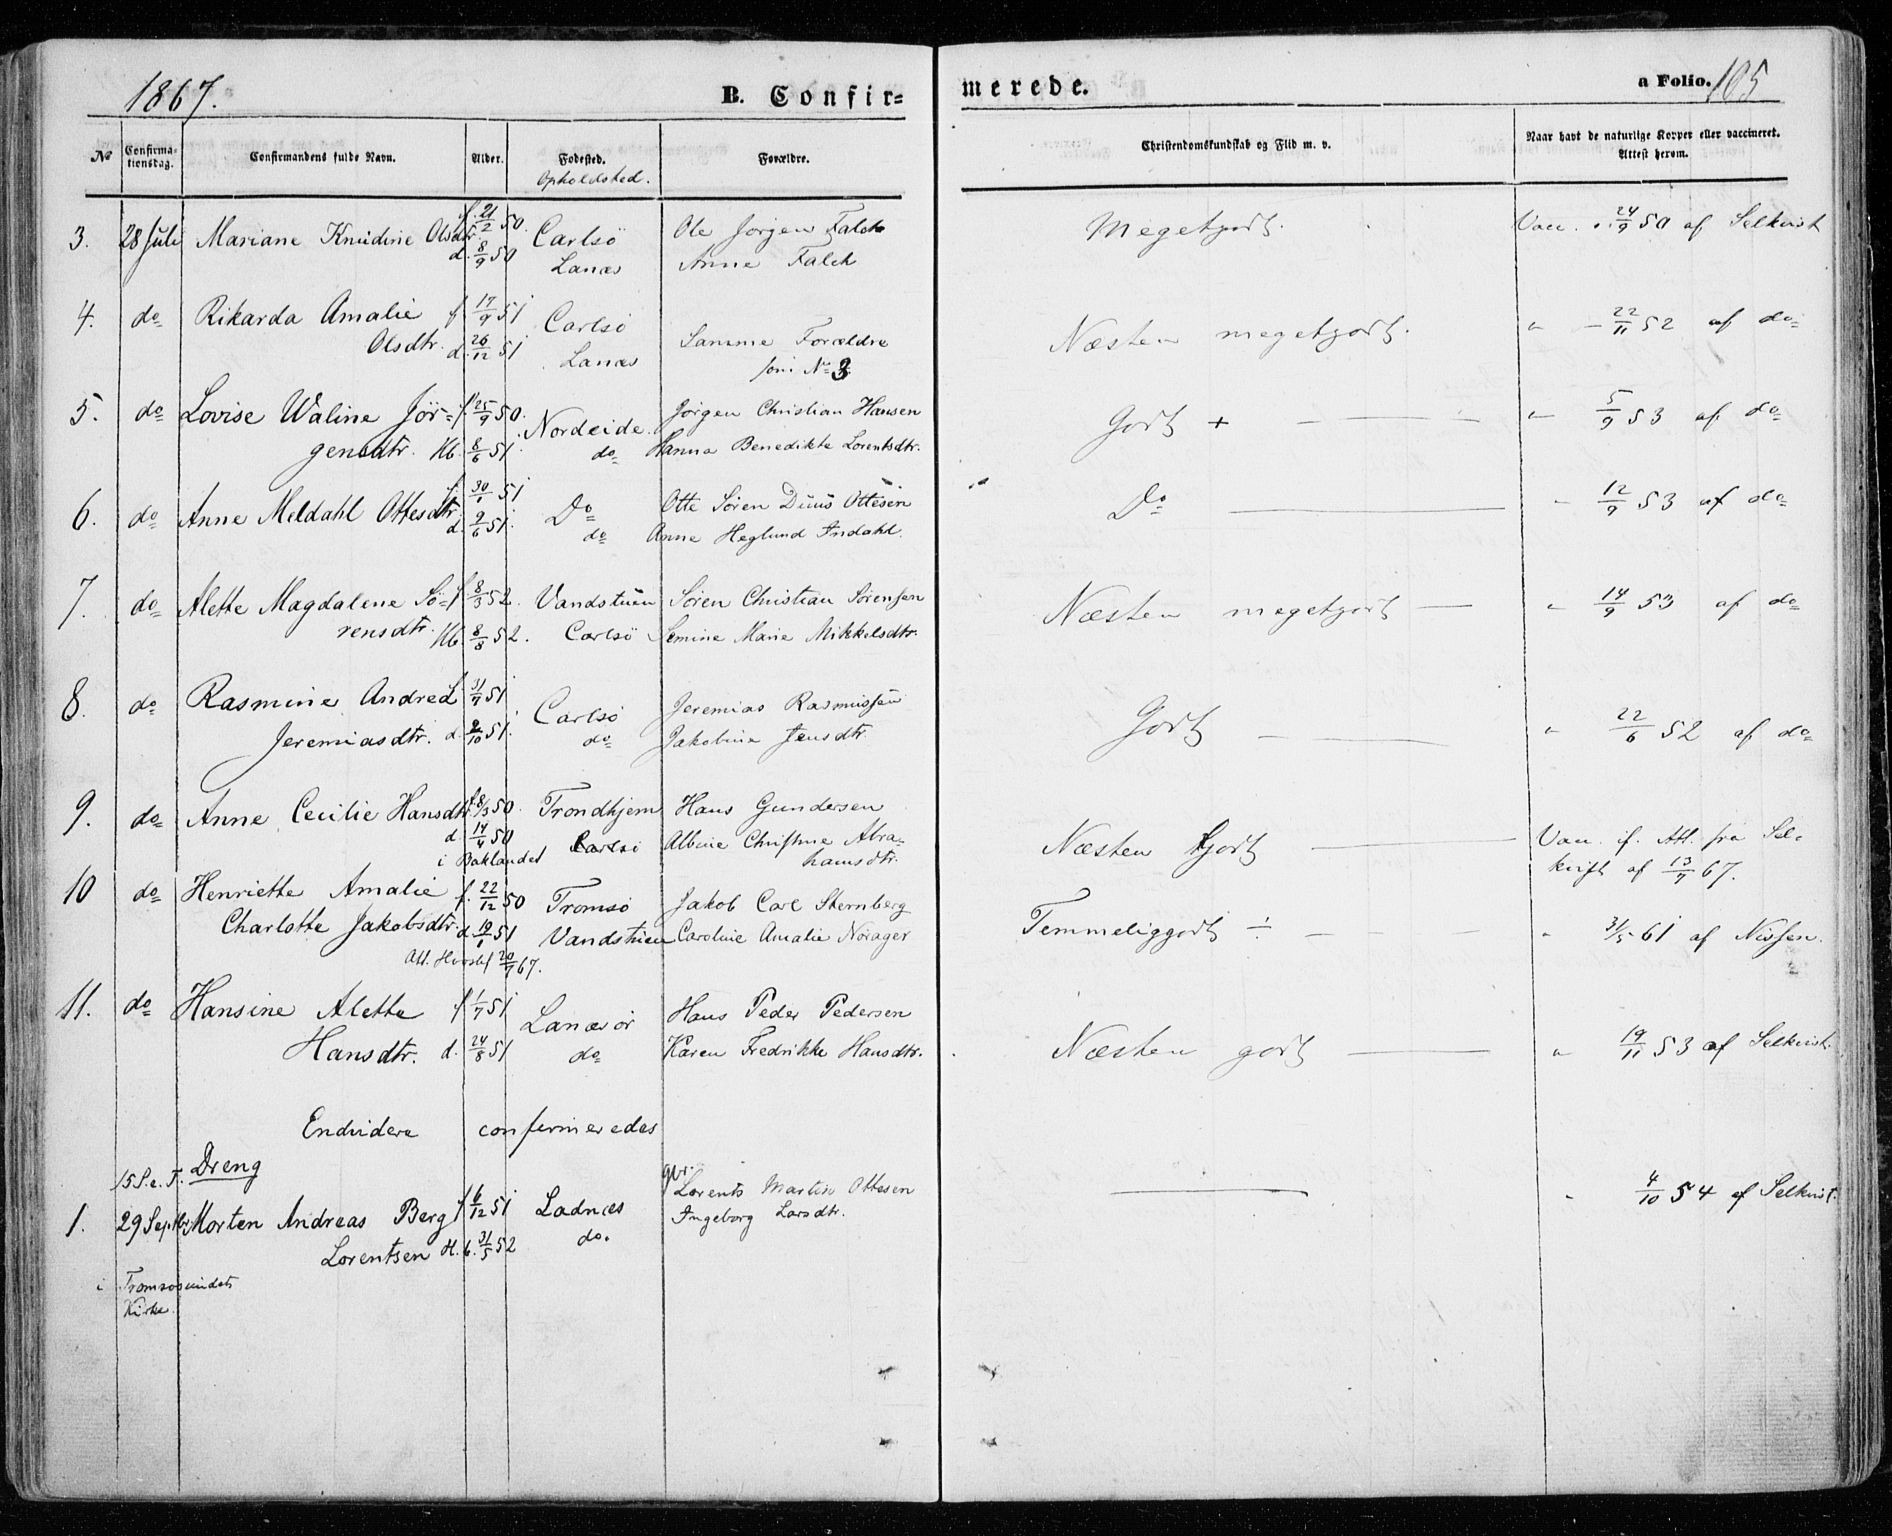 1867.
B. Confir=
merede.
a Folio. 105
No
Confirma-
tionsdag.
Confirmandens fulde Navn.
Alder.
Fødested.
Opholdsted.
Forældre.
Christendomskundskab og Flid m. v.
Naar havt de naturlige Kopper eller vaccineret.
Attest herom.
3. 28 Juli Mariane Knudine Olsdtr. f. 21/2 50. Carlsö Ole Jørgen Falch Megetgodt. Vacc. 24/9 50 af Selkvist
d. 8/9 50 Lanæs Anne Falch
4. do Rikarda Amalie f 17/9 51 Carlsö Samme Forældre Næsten megetgodt. " 22/11 52 af do
Olsdtr. d. 26/12 51 Lanæs som No 3.
5. do Lovise Waline Jör= f. 25/9 50. Nordeide Jørgen Christian Hansen Godt + " 5/9 53 af do
gensdtr. Hb. 8/6 51. do Hanna Benedikte Lorentsdtr.
6. do Anne Meldahl Ottesdtr. f. 30/1 51 Do Otte Søren Duus Ottesen Do " 12/9 53 af do
d. 9/6 51. do Anne Heglund Indahl.
7. do Alette Magdalene Sö= f 8/3 52. Vandstuen Sören Christian Sørensen Næsten megetgodt " 14/9 53 af do
rensdtr. Hb. 8/8 52. Carlsö Semine Marie Mikkelsdtr.
8. do Rasmine Andrea f. 31/7 51 Carlsö Jeremias Rasmussen Godt " 22/6 52 af do
Jeremiasdtr. d. 9/10 51. do Jakobine Jensdtr.
9. do Anne Cecilie Hansdtr. f. 8/3 50. Trondhjem Hans Gundersen Næsten godt Vacc. if. Att. fra Sel-
d. 14/4 50 Carlsö Albine Christine Abra- kvist af 13/7 67.
i Baklandet hamsdtr.
10 do Henriette Amalie f. 22/12 50 Tromsö Jakob Carl Sternberg Temmeliggodt ÷ " 3/5 61 af Nissen.
Charlotte Jakobsdtr. d. 19/1 51 Vandstuen Caroline Amalie Norager
Att. 20/7 67.
11. do Hansine Alette f 1/7 51 Lanæsör Hans Peder Pedersen Næsten godt " 19/11 53 af Selkvist.
Hansdtr. d. 24/8 51 do Karen Fredrikke Hansdtr.
Endvidere confirmeredes
15 S. e. T. Dreng
1. 29 Septbr. Morten Andreas Berg f 6/12 51 Ladnæs gbr. Lorents Martin Ottesen " 4/10 54 af Selkvist.
Lorentsen H. b. 31/5 52 do. Ingeborg Larsdtr.
i Tromsøsundets
Kirke.